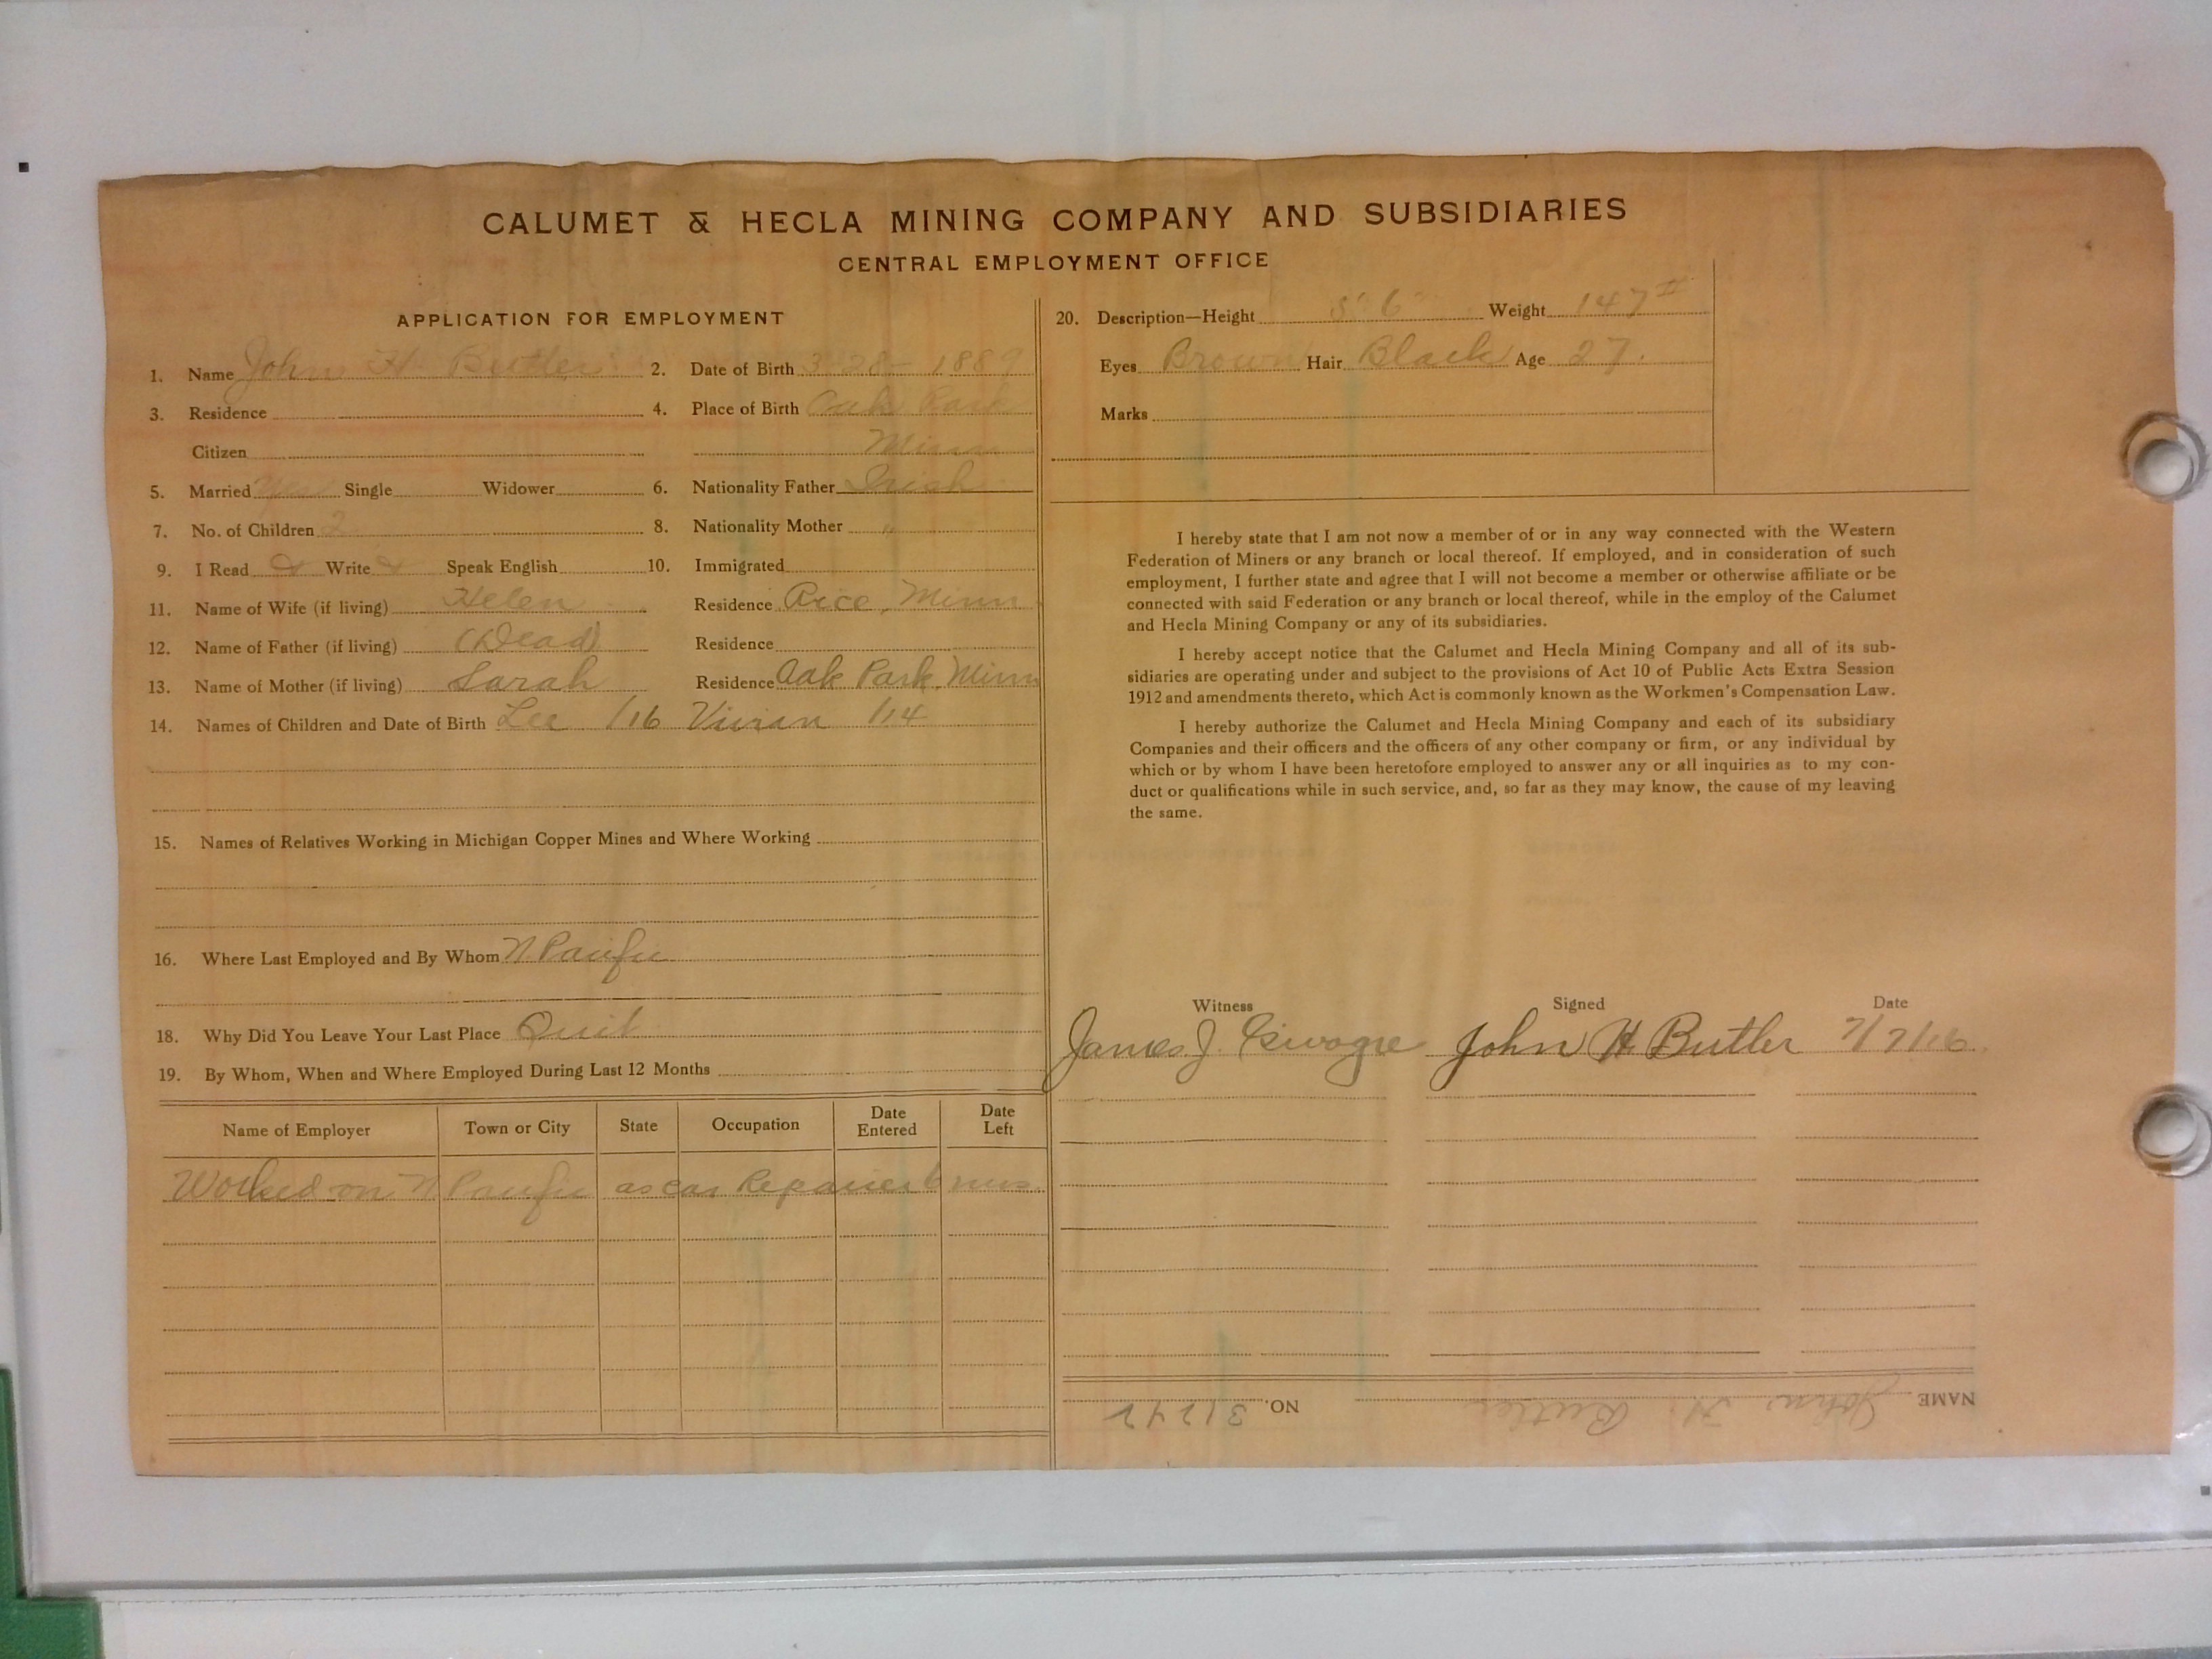 CALUMET & HECLA MINING COMPANY AND SUBSIDIARIES
CENTRAL EMPLOYMENT OFFICE
APPLICATION FOR EMPLOYMENT
1. Name John H Butler 2. Date of Birth 3-28-1889
3. Residence 4. Place of Birth Oak Park
Citizen Minn
5. Married Yes Single Widower 6. Nationality Father Irish
7. No. of Children 2 8. Nationality Mother "
9. I Read Write Speak English 10. Immigrated
11. Name of Wife (if living) Helen Residence Rice, Minn
12. Name of Father (if living) (Dead) Residence
13. Name of Mother (if living) Sarah Residence Oak Park, Minn
14. Names of Children and Date of Birth Lee 1/16 Vivian 1/14
15. Names of Relatives Working in Michigan Copper Mines and Where Working
16. Where Last Employed and By Whom N. Pacific
18. Why Did You Leave Your Last Place Quit
19. By Whom, When and Where Employed During Last 12 Months
Name of Employer Town or City State Occupation Date Entered Date Left
Worked on N Pacific as car Repairer 6 mos.
20. Description—Height 5' 6" Weight 147
Eyes Brown Hair Black Age 27.
Marks
I hereby state that I am not now a member of or in any way connected with the Western
Federation of Miners or any branch or local thereof. If employed, and in consideration of such
employment, I further state and agree that I will not become a member or otherwise affiliate or be
connected with said Federation or any branch or local thereof, while in the employ of the Calumet
and Hecla Mining Company or any of its subsidiaries.
I hereby accept notice that the Calumet and Hecla Mining Company and all of its sub-
sidiaries are operating under and subject to the provisions of Act 10 of Public Acts Extra Session
1912 and amendments thereto, which Act is commonly known as the Workmen's Compensation Law.
I hereby authorize the Calumet and Hecla Mining Company and each of its subsidiary
Companies and their officers and the officers of any other company or firm, or any individual by
which or by whom I have been heretofore employed to answer any or all inquiries as to my con-
duct or qualifications while in such service, and, so far as they may know, the cause of my leaving
the same.
Witness Signed Date
James J. John H Butler 7/7/16
NAME John H. Butler NO. 31242